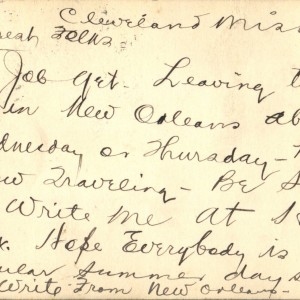 Cleveland Miss
Folks
Job yet - Leaving t
in New Orleans ab
dnesday or Thursday -
w Traveling - Be S
Write me at S
Hope Everybody is
ular Summer days
Write From New Orleans -